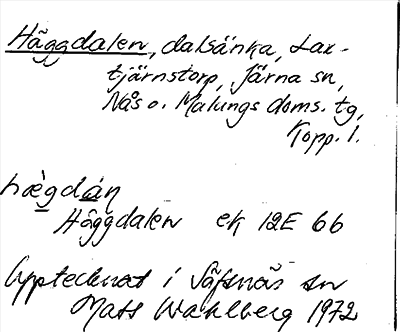 Häggdalen, dalsänka, Lax-
tjärnstorp, Järna sn,
Nås o. Malungs doms. tg,
Kopp. l.
hæ̀gdán
Häggdalen ek 12E 66
Upptecknat i Säfsnäs sn
Mats Wahlberg 1972